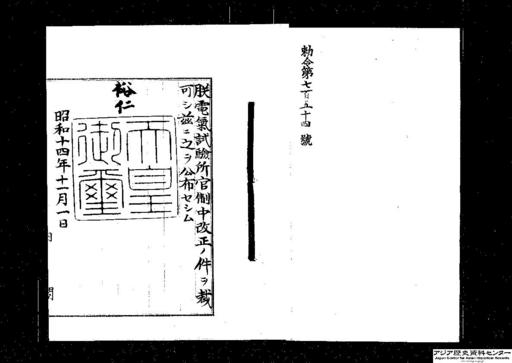 勅令第七百五十四號
朕電氣試驗所官制中改正ノ件ヲ裁
可シ茲ニ之ヲ公布セシム
裕仁
天皇御璽
昭和十四年十一月一日
アジア歴史資料センター
Japan Center for Asian Historical Records